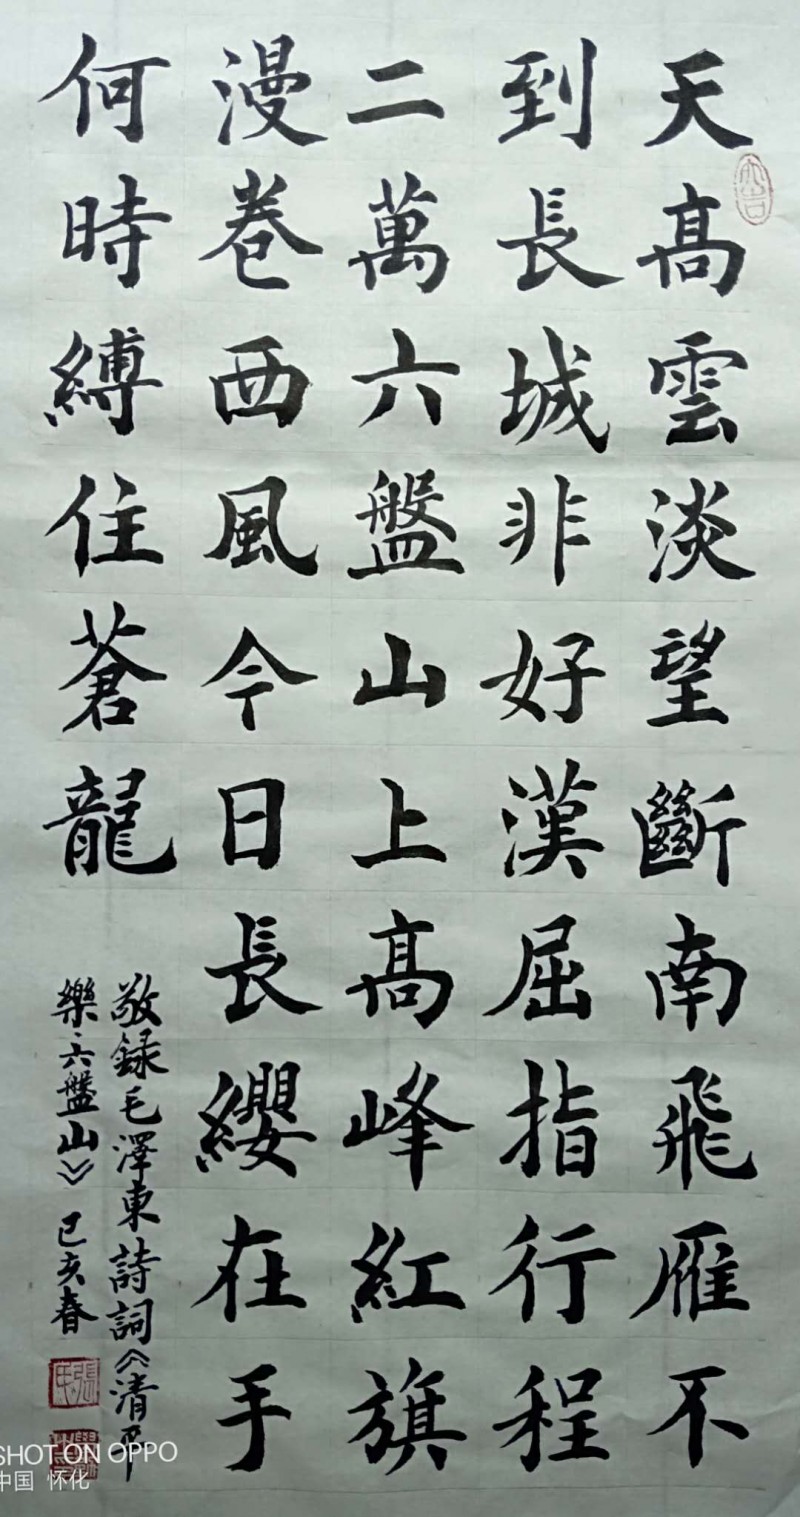 天高雲淡望斷南飛雁不
到長城非好漢屈指行程
二萬六盤山上高峰紅旗
漫卷西風今日長纓在手
何時縛住蒼龍
敬録毛澤東詩詞《清平
樂·六盤山》己亥春
SHOT ON OPPO
中国 怀化